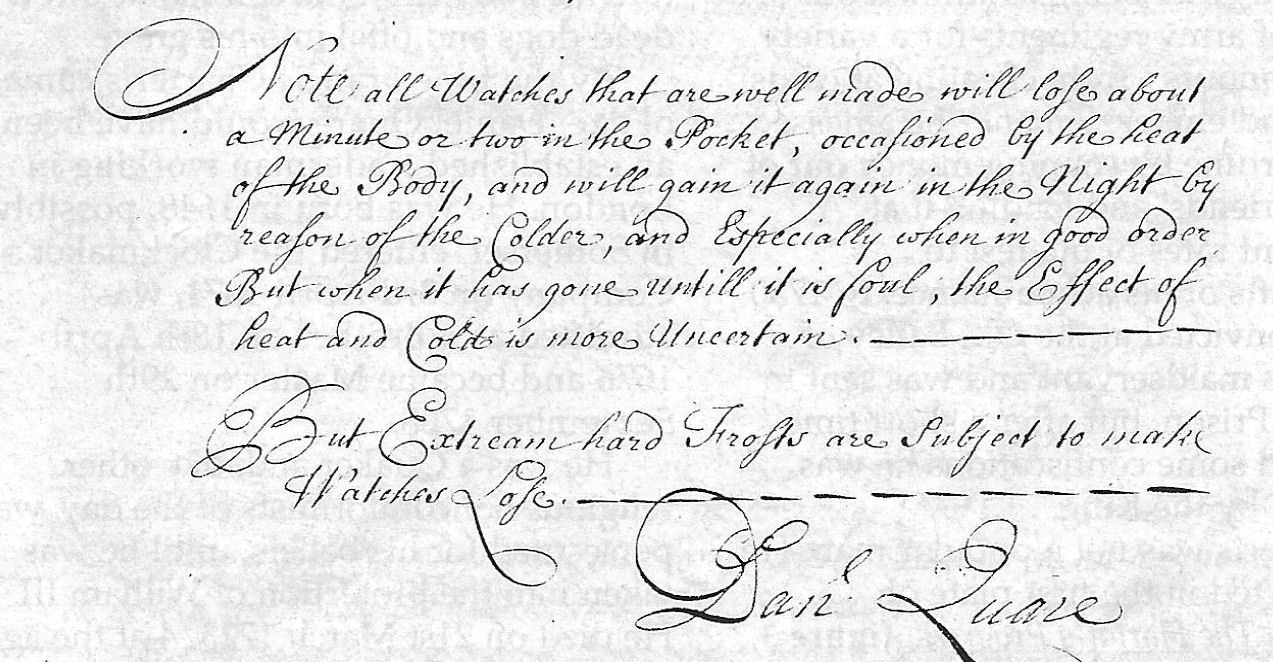 Note all Watches that are well made will lose about
a Minute or two in the Pocket, occasioned by the heat
of the Body, and will gain it again in the Night by
reason of the Colder, and Especially when in good order
But when it has gone untill it is foul, the Effect of
heat and Cold is more Uncertain.
But Extream hard Frosts are Subject to make
Watches Lose.
Danl Quare